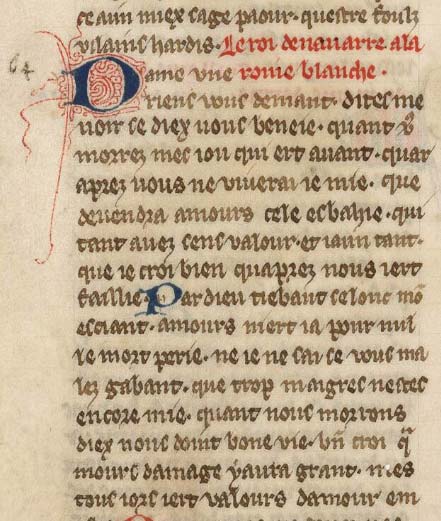 ce aim miex sage paour. questre folz
vilains hardis. Le roi denauarre a la
64
Dame vne roine blanche.
riens vous demant. dites me
uoir se diex uous beneie. quant v9
morrez mes iou qui ert auant. quar
aprez uous ne viuerai ie mie. que
deuendra amours cele esbahie. qui
tant auez sens valour. et iaim tant.
que ie croi bien quaprez uous iert
faillie. Par dieu tiebaut selonc mō
esciant. amours niert ia pour nul
le mort perie. ne ie ne sai se vous ma
lez gabant. que trop maigres nestes
encore mie. quant nous morrons
diex nous doint bone vie. bn̄ croi q̄
mours damage y aura grant. mes
tous iors iert valours damour em